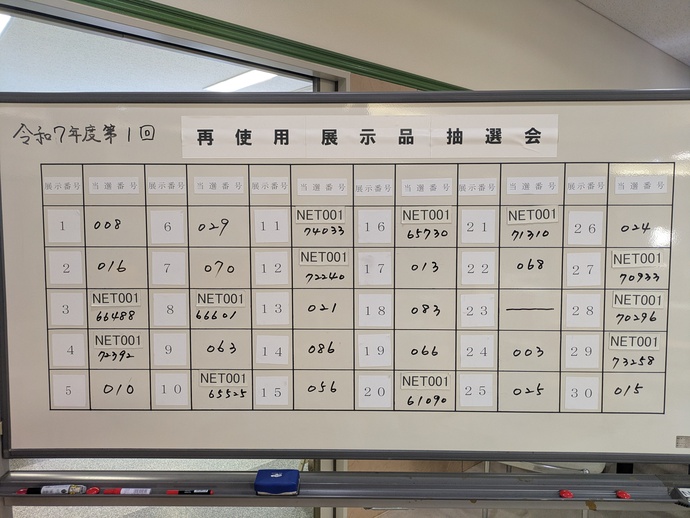 令和7年度第1回
再使用 展示品 抽選会
展示番号 当選番号 展示番号 当選番号 展示番号 当選番号 展示番号 当選番号 展示番号 当選番号 展示番号 当選番号
1 008 6 029 11 NET001 74033 16 NET001 65730 21 NET001 71310 26 024
2 016 7 070 12 NET001 72240 17 013 22 068 27 NET001 70933
3 NET001 66488 8 NET001 66601 13 021 18 083 23 — 28 NET001 70296
4 NET001 72392 9 063 14 086 19 066 24 003 29 NET001 73258
5 010 10 NET001 65525 15 056 20 NET001 61090 25 025 30 015